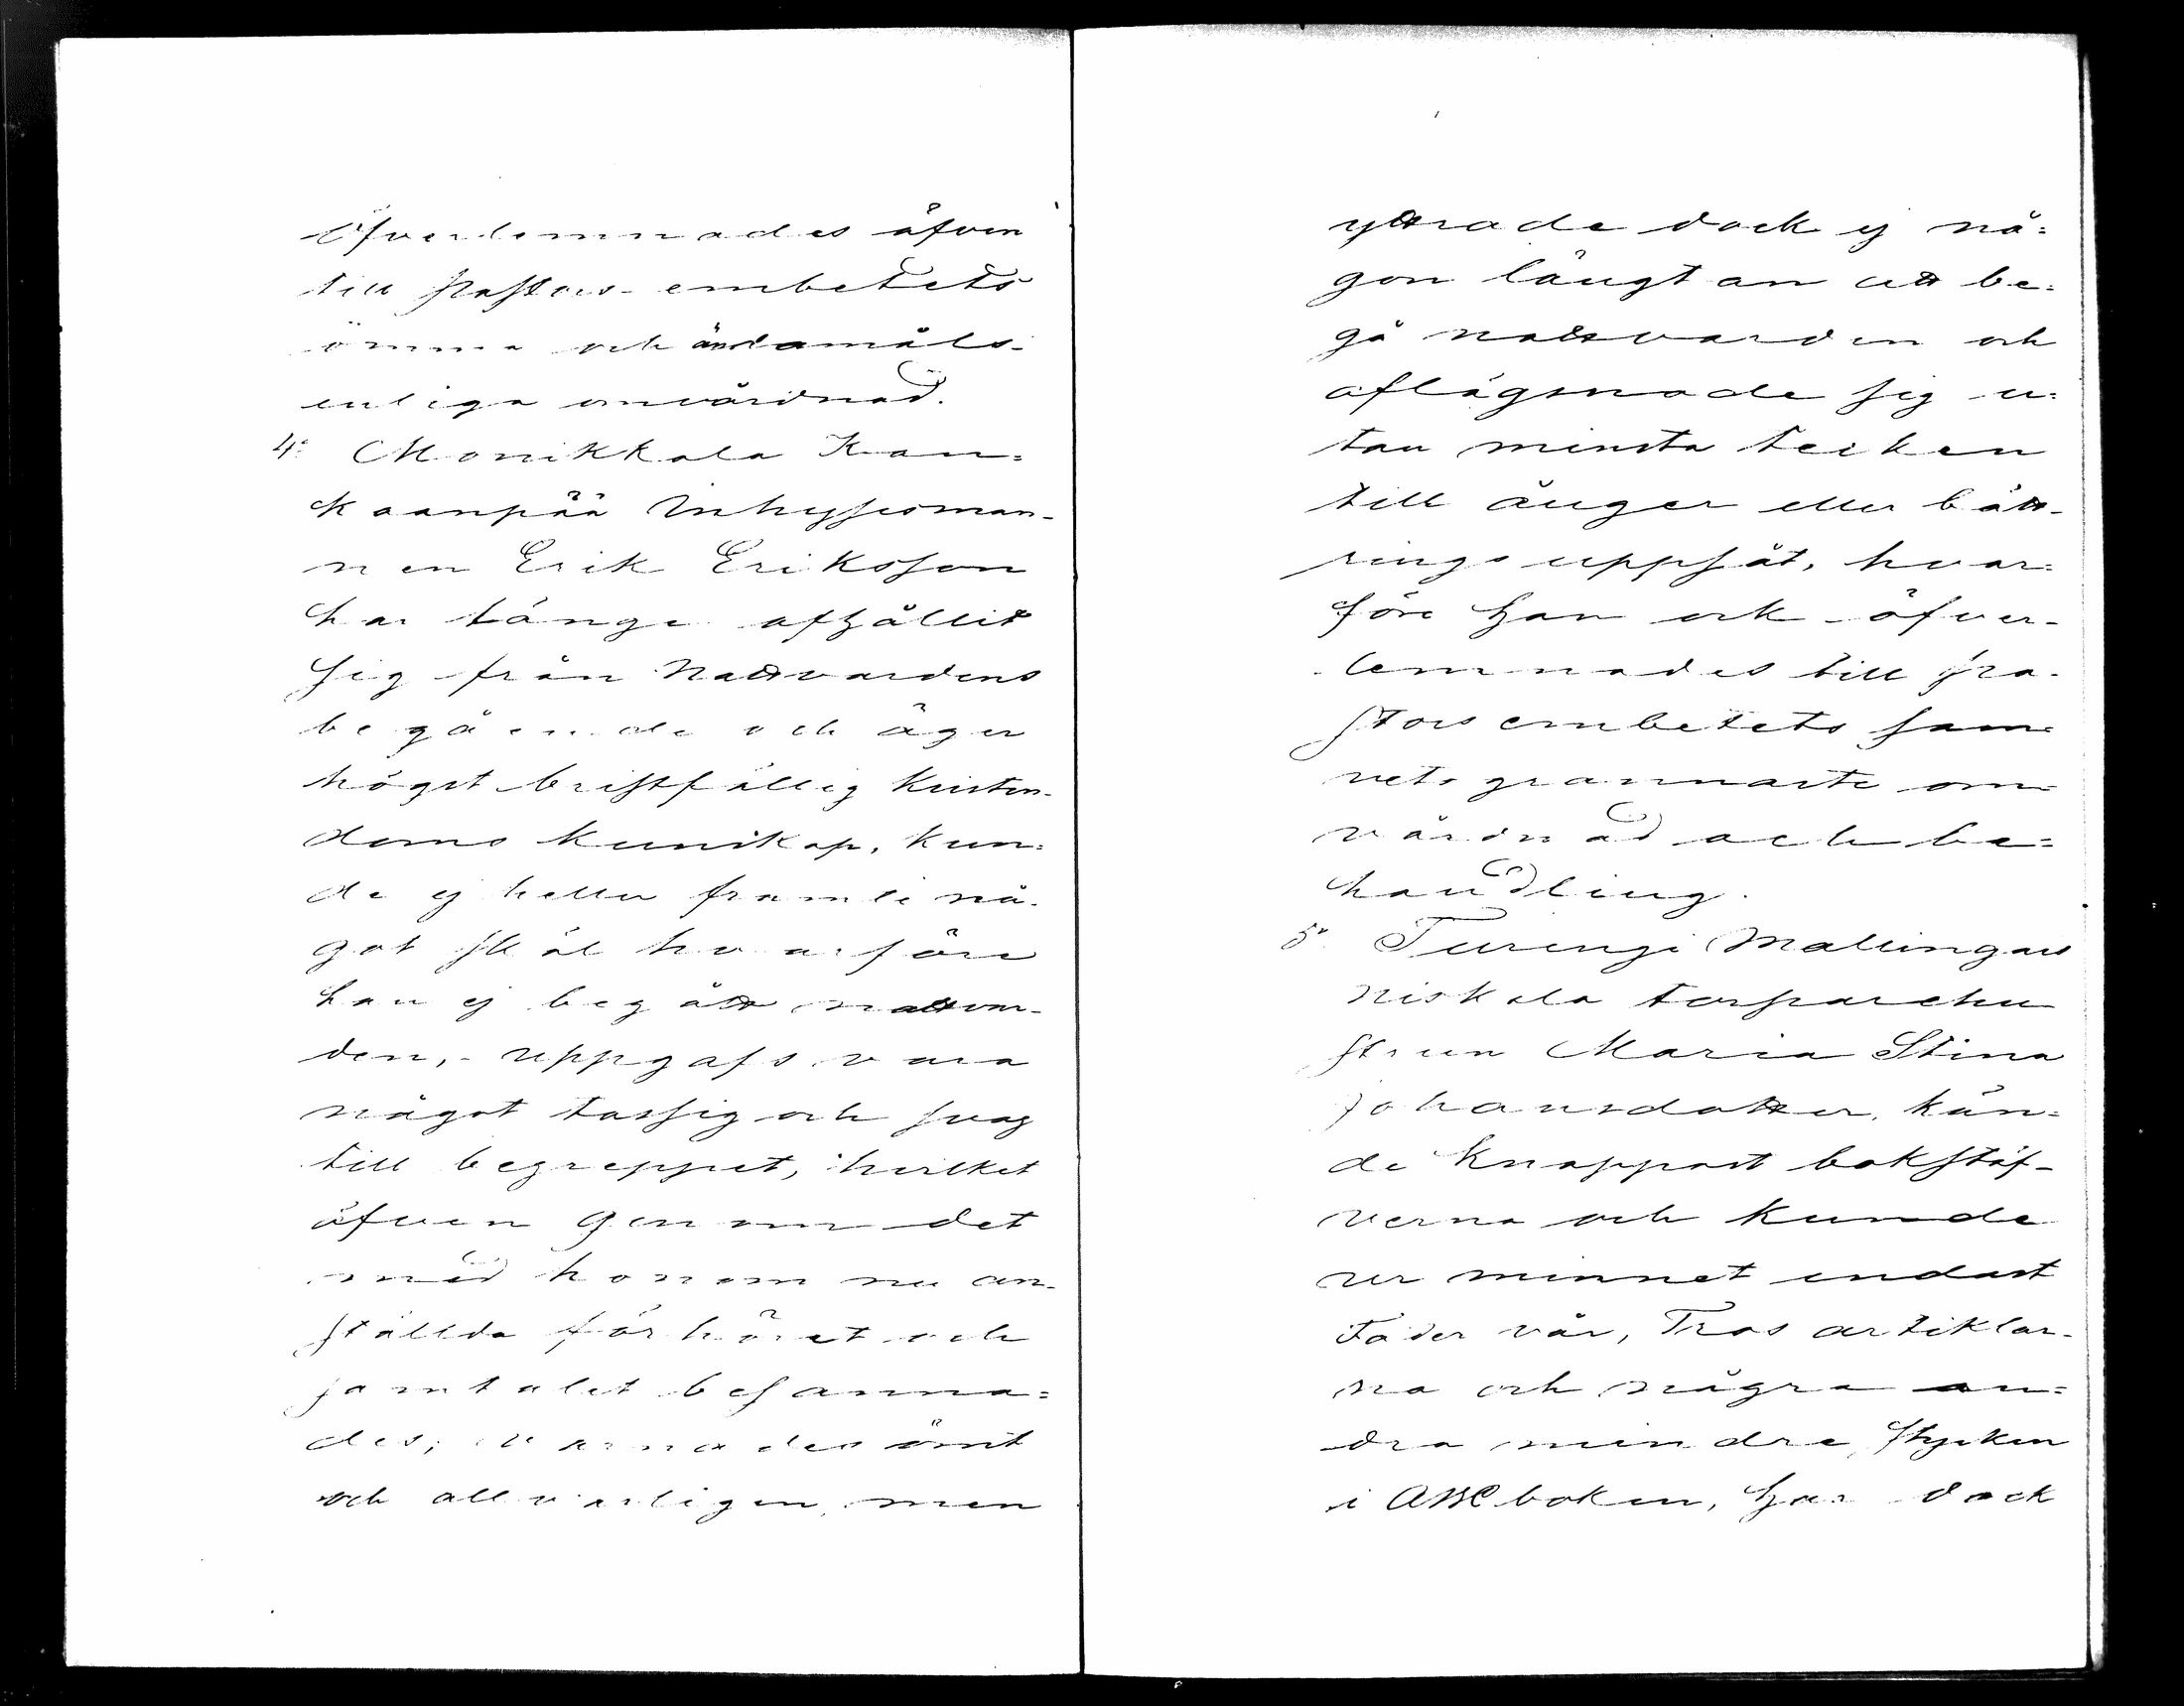 Öfverlemnades äfven
till pastors-embetets
ömma och ändamåls-
enliga omvårdnad.
4: Monikkala Kan=
kaanpää Inhysesman-
nen Erik Eriksson
har länge afhållit
sig från Nattvardens
begående och äger
högst bristfällig kristen-
doms kunskap, kun=
de ej heller framle nå-
got skäl hvarföre
han ej begått nattvar-
den, - uppgafs vara
något tassig och svag
till begreppet, hvilket
äfven genom det
med honom nu an-
ställda förhöret och
samtalet besanna=
des; varnades ömt
och allvarligen, men
yttrade dock ej nå=
gon längtan att be=
gå nattvarden och
aflägsnade sig u=
tan minsta tecken
till ånger eller bätt-
ringsuppsåt, hvar=
före han ock öfver-
lemnades till pa-
storsembetets sam-
vetsgrannaste om-
vårdnad och be=
handling.
5: Turengi Mallingais
Niskala torparehu
strun Maria Stina
Johansdotter, kän=
de knappast bokstäf-
verna och kunde
ur minnet endast
Fader vår, Tros artiklar-
na och några an=
dra mindre stycken
i ABC boken, har dock